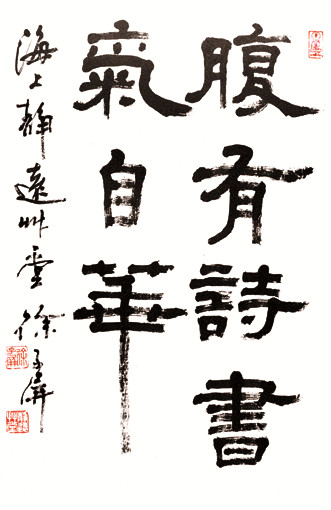 腹有詩書
氣自華
海上靜遠艸堂徐子屏